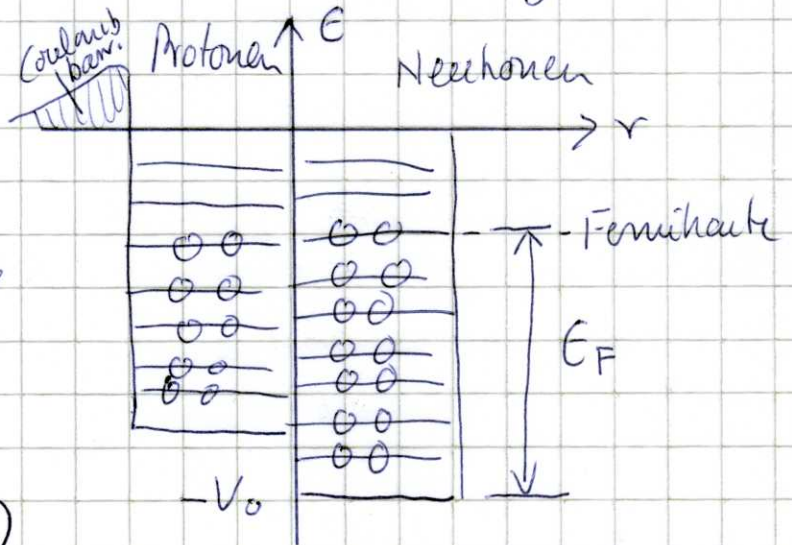 Coulomb
barr.
Protonen
E
Neutronen
r
Fermikante
E_F
-V₀
)